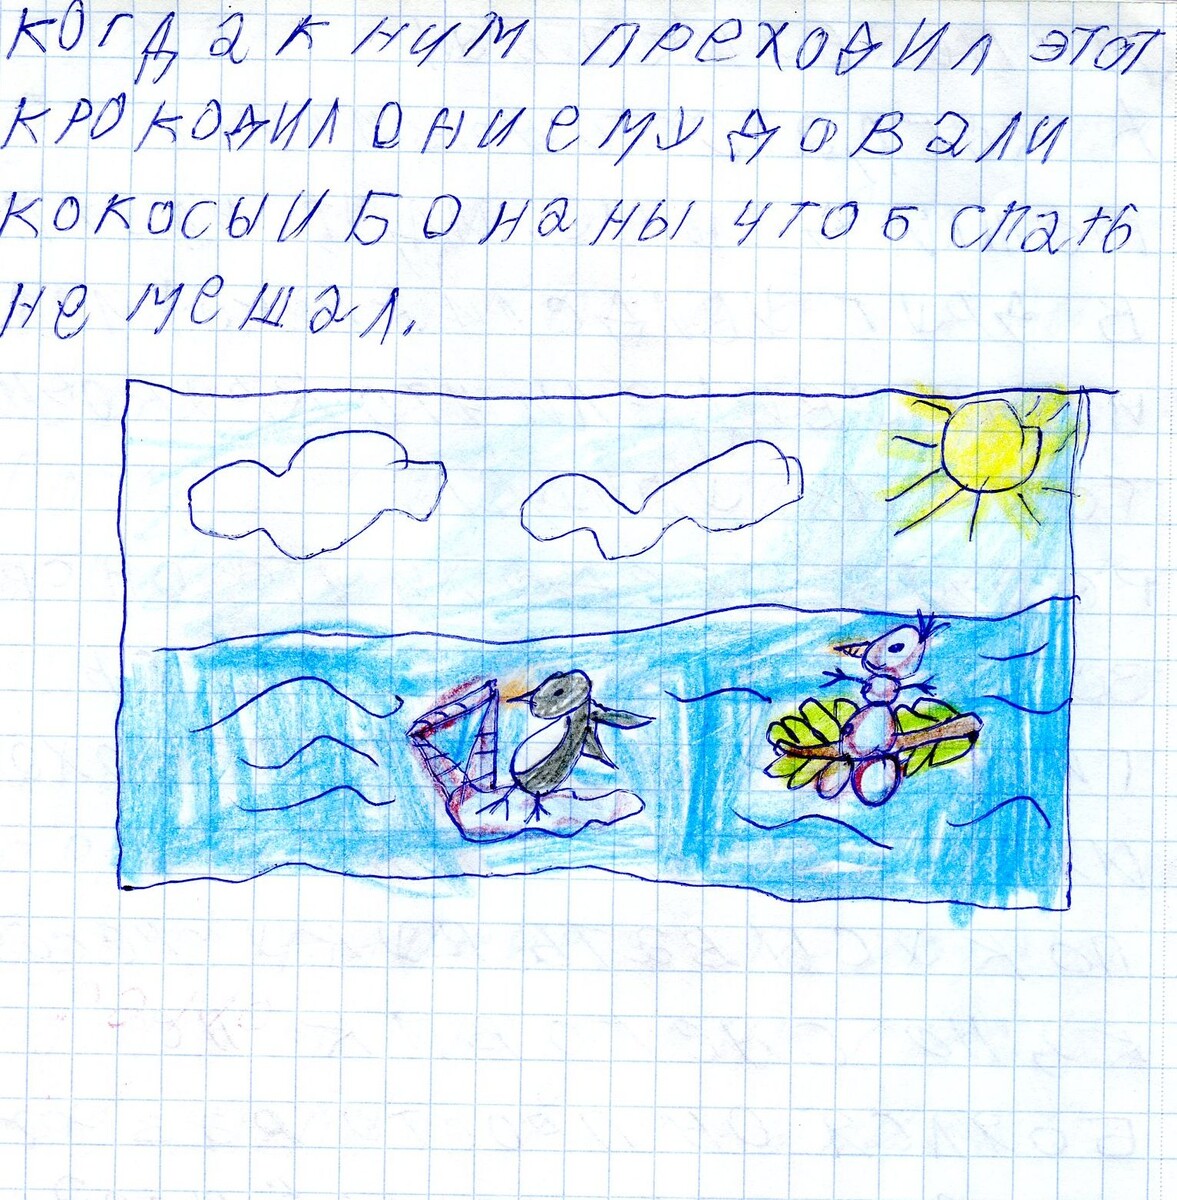 когда к ним преходил этот
крокодил они ему довали
кокосы и Бонаны чтоб спать
не мешал.